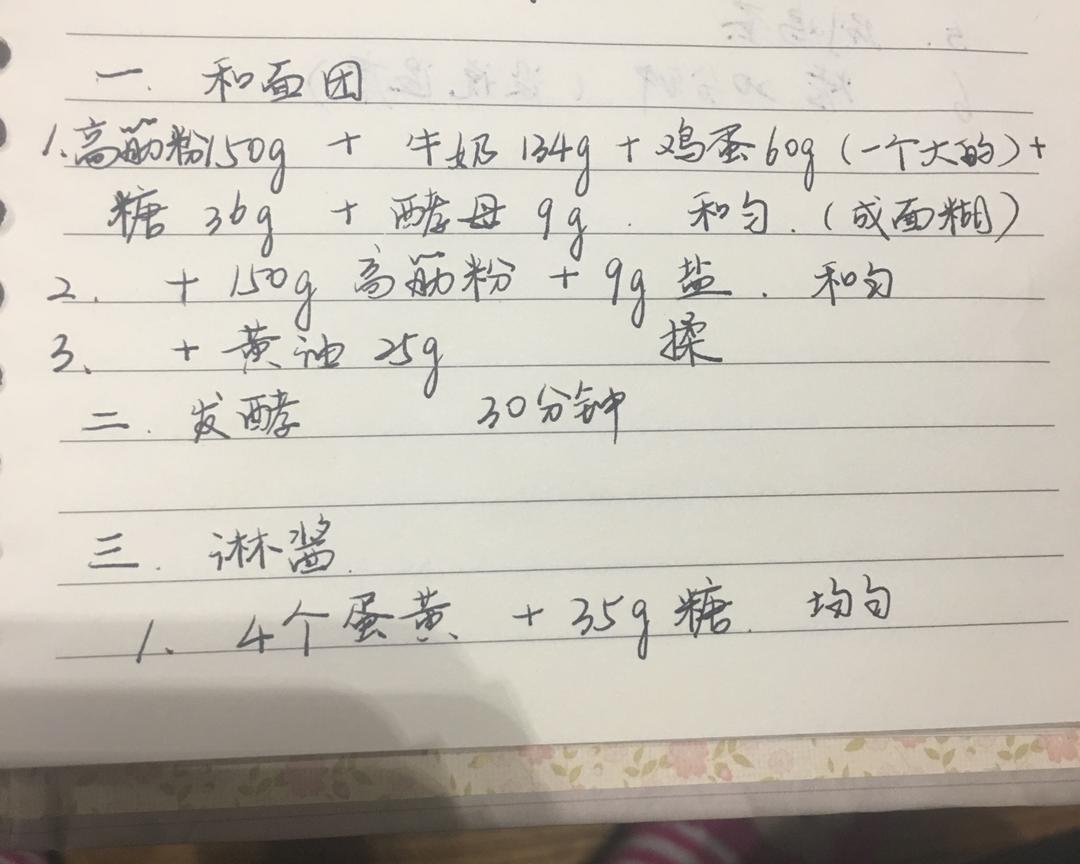 一. 和面团
1.高筋粉150g + 牛奶 134g + 鸡蛋60g (一个大的) +
糖 36g + 酵母 9g. 和匀.(成面糊)
2. + 150g 高筋粉 + 9g 盐. 和匀
3. + 黄油 25g 揉
二. 发酵 30分钟
三. 淋酱.
1. 4个蛋黄 + 35g 糖. 均匀